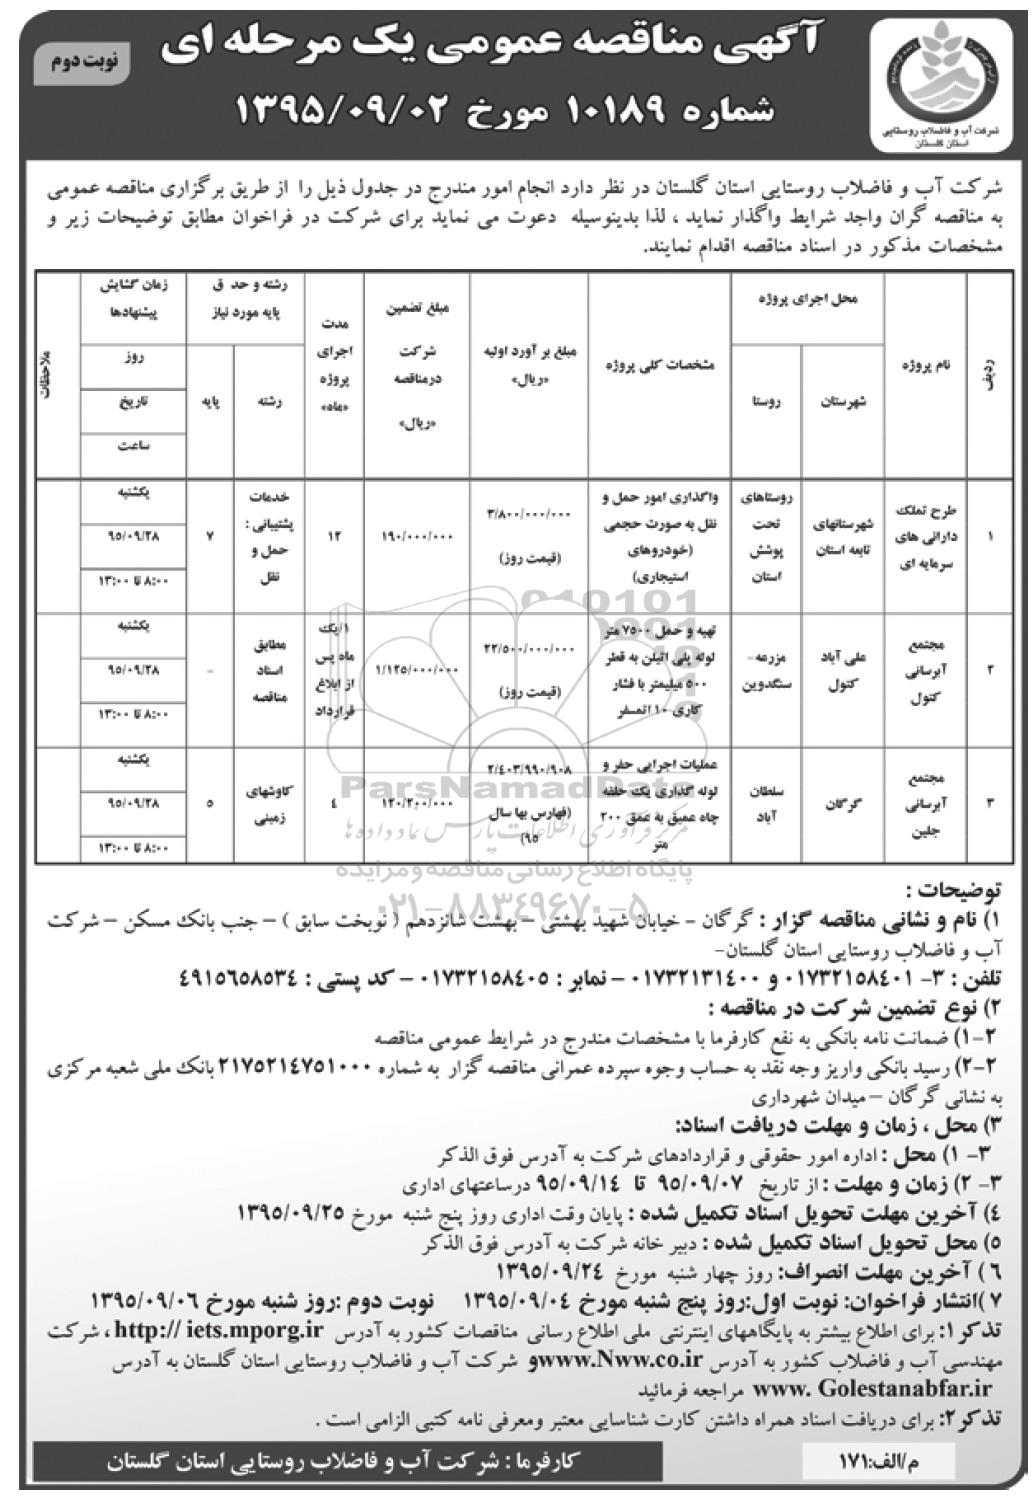 آگهی مناقصه عمومی یک مرحله ای
شماره ۱۰۱۸۹ مورخ ۱۳۹۵/۰۹/۰۲
نوبت دوم
شرکت آب و فاضلاب روستایی
استان گلستان
شرکت آب و فاضلاب روستایی استان گلستان در نظر دارد انجام امور مندرج در جدول ذیل را از طریق برگزاری مناقصه عمومی
به مناقصه گران واجد شرایط واگذار نماید ، لذا بدینوسیله دعوت می نماید برای شرکت در فراخوان مطابق توضیحات زیر و
مشخصات مذکور در اسناد مناقصه اقدام نمایند.
ردیف
نام پروژه
محل اجرای پروژه
شهرستان
روستا
مشخصات کلی پروژه
مبلغ بر آورد اولیه
«ریال»
مبلغ تضمین
شرکت
درمناقصه
«ریال»
مدت
اجرای
پروژه
«ماه»
رشته و حد ق
پایه مورد نیاز
رشته
پایه
زمان گشایش
پیشنهادها
روز
تاریخ
ساعت
ملاحظات
۱
طرح تملک
دارائی های
سرمایه ای
شهرستانهای
تابعه استان
روستاهای
تحت
پوشش
استان
واگذاری امور حمل و
نقل به صورت حجمی
(خودروهای
استیجاری)
۳/۸۰۰/۰۰۰/۰۰۰
(قیمت روز)
۱۹۰/۰۰۰/۰۰۰
۱۲
خدمات
پشتیبانی :
حمل و
نقل
۷
یکشنبه
۹۵/۰۹/۲۸
۸:۰۰ تا ۱۳:۰۰
۲
مجتمع
آبرسانی
کتول
علی آباد
کتول
مزرعه-
سنگدوین
تهیه و حمل ۷۵۰۰ متر
لوله پلی اتیلن به قطر
۵۰۰ میلیمتر با فشار
کاری ۱۰ اتمسفر
۲۲/۵۰۰/۰۰۰/۰۰۰
(قیمت روز)
۱/۱۲۵/۰۰۰/۰۰۰
۱/یک
ماه پس
از ابلاغ
قرارداد
مطابق
اسناد
مناقصه
-
یکشنبه
۹۵/۰۹/۲۸
۸:۰۰ تا ۱۳:۰۰
۳
مجتمع
آبرسانی
جلین
گرگان
سلطان
آباد
عملیات اجرایی حفر و
لوله گذاری یک حلقه
چاه عمیق به عمق ۲۰۰
متر
۲/۴۰۳/۹۹۰/۹۰۸
(فهارس بها سال
۹۵)
۱۲۰/۲۰۰/۰۰۰
۴
کاوشهای
زمینی
۵
یکشنبه
۹۵/۰۹/۲۸
۸:۰۰ تا ۱۳:۰۰
ParsNamadData
مرکز فرآوری اطلاعات پارس نماد داده ها
پایگاه اطلاع رسانی مناقصه و مزایده
۰۲۱-۸۸۳۴۹۶۷۰-۵
توضیحات :
۱) نام و نشانی مناقصه گزار : گرگان - خیابان شهید بهشتی - بهشت شانزدهم ( نوبخت سابق ) – جنب بانک مسکن – شرکت
آب و فاضلاب روستایی استان گلستان-
تلفن : ۳- ۰۱۷۳۲۱۵۸۴۰۱ و ۰۱۷۳۲۱۳۱۴۰۰ – نمابر : ۰۱۷۳۲۱۵۸۴۰۵ – کد پستی : ۴۹۱۵۶۵۸۵۳۴
۲) نوع تضمین شرکت در مناقصه :
۲-۱) ضمانت نامه بانکی به نفع کارفرما با مشخصات مندرج در شرایط عمومی مناقصه
۲-۲) رسید بانکی واریز وجه نقد به حساب وجوه سپرده عمرانی مناقصه گزار به شماره ۲۱۷۵۲۱۴۷۵۱۰۰۰ بانک ملی شعبه مرکزی
به نشانی گرگان – میدان شهرداری
۳) محل ، زمان و مهلت دریافت اسناد:
۳- ۱) محل : اداره امور حقوقی و قراردادهای شرکت به آدرس فوق الذکر
۳- ۲) زمان و مهلت : از تاریخ ۹۵/۰۹/۰۷ تا ۹۵/۰۹/۱۴ درساعتهای اداری
۴) آخرین مهلت تحویل اسناد تکمیل شده : پایان وقت اداری روز پنج شنبه مورخ ۱۳۹۵/۰۹/۲۵
۵) محل تحویل اسناد تکمیل شده : دبیر خانه شرکت به آدرس فوق الذکر
۶ ) آخرین مهلت انصراف: روز چهار شنبه مورخ ۱۳۹۵/۰۹/۲۴
۷ )انتشار فراخوان: نوبت اول:روز پنج شنبه مورخ ۱۳۹۵/۰۹/۰۴ نوبت دوم :روز شنبه مورخ ۱۳۹۵/۰۹/۰۶
تذکر ۱: برای اطلاع بیشتر به پایگاههای اینترنتی ملی اطلاع رسانی مناقصات کشور به آدرس http:// iets.mporg.ir ، شرکت
مهندسی آب و فاضلاب کشور به آدرس www.Nww.co.ir و شرکت آب و فاضلاب روستایی استان گلستان به آدرس
www. Golestanabfar.ir مراجعه فرمائید
تذکر ۲: برای دریافت اسناد همراه داشتن کارت شناسایی معتبر ومعرفی نامه کتبی الزامی است .
م/الف:۱۷۱
کارفرما : شرکت آب و فاضلاب روستایی استان گلستان